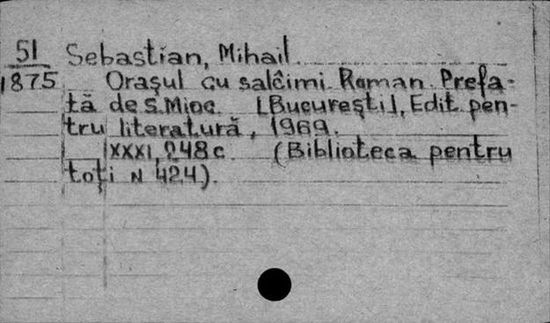 51 Sebastian, Mihail
1875 Oraşul cu salcîmi. Roman. Prefa-
tă de S. Mioc [Bucureşti], Edit. pen-
tru literatură, 1969.
XXXI, 248 c. (Biblioteca pentru
toţi N 424).